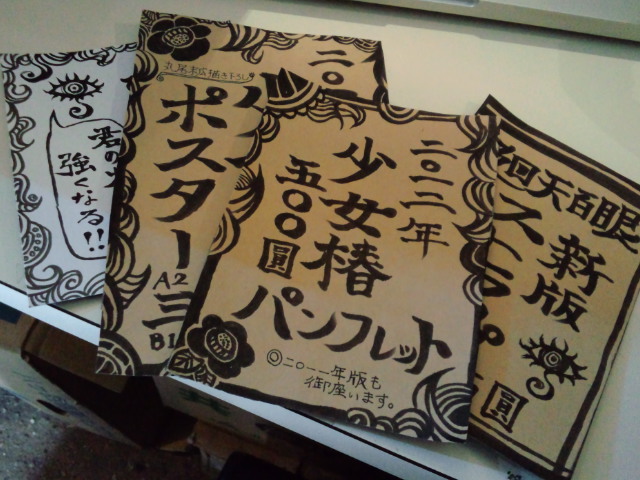 君の
強くなる!!
丸尾末広描き下ろし
二〇
ポスター
A2
三
B1
二〇一二年
少女椿
五〇〇圓
パンフレット
◎二〇一一年版も
御座います。
廻天百眼
新版
圓